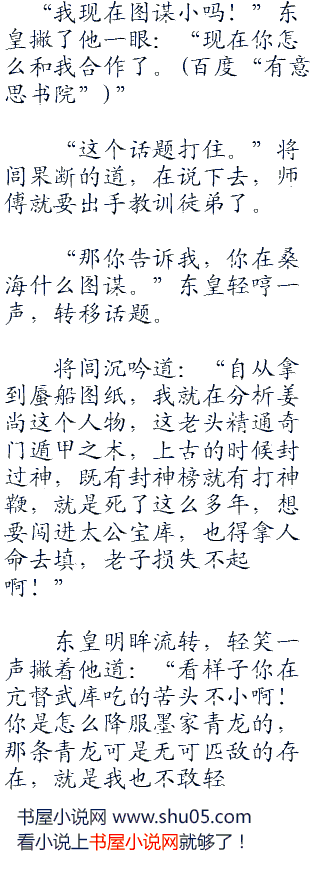 “我现在图谋小吗！”东
皇撇了他一眼：“现在你怎
么和我合作了。(百度“有意
思书院”)”
“这个话题打住。”将
闾果断的道，在说下去，师
傅就要出手教训徒弟了。
“那你告诉我，你在桑
海什么图谋。”东皇轻哼一
声，转移话题。
将闾沉吟道：“自从拿
到蜃船图纸，我就在分析姜
尚这个人物，这老头精通奇
门遁甲之术，上古的时候封
过神，既有封神榜就有打神
鞭，就是死了这么多年，想
要闯进太公宝库，也得拿人
命去填，老子损失不起
啊！”
东皇明眸流转，轻笑一
声撇着他道：“看样子你在
亢督武库吃的苦头不小啊！
你是怎么降服墨家青龙的，
那条青龙可是无可匹敌的存
在，就是我也不敢轻
书屋小说网 www.shu05.com
看小说上书屋小说网就够了！